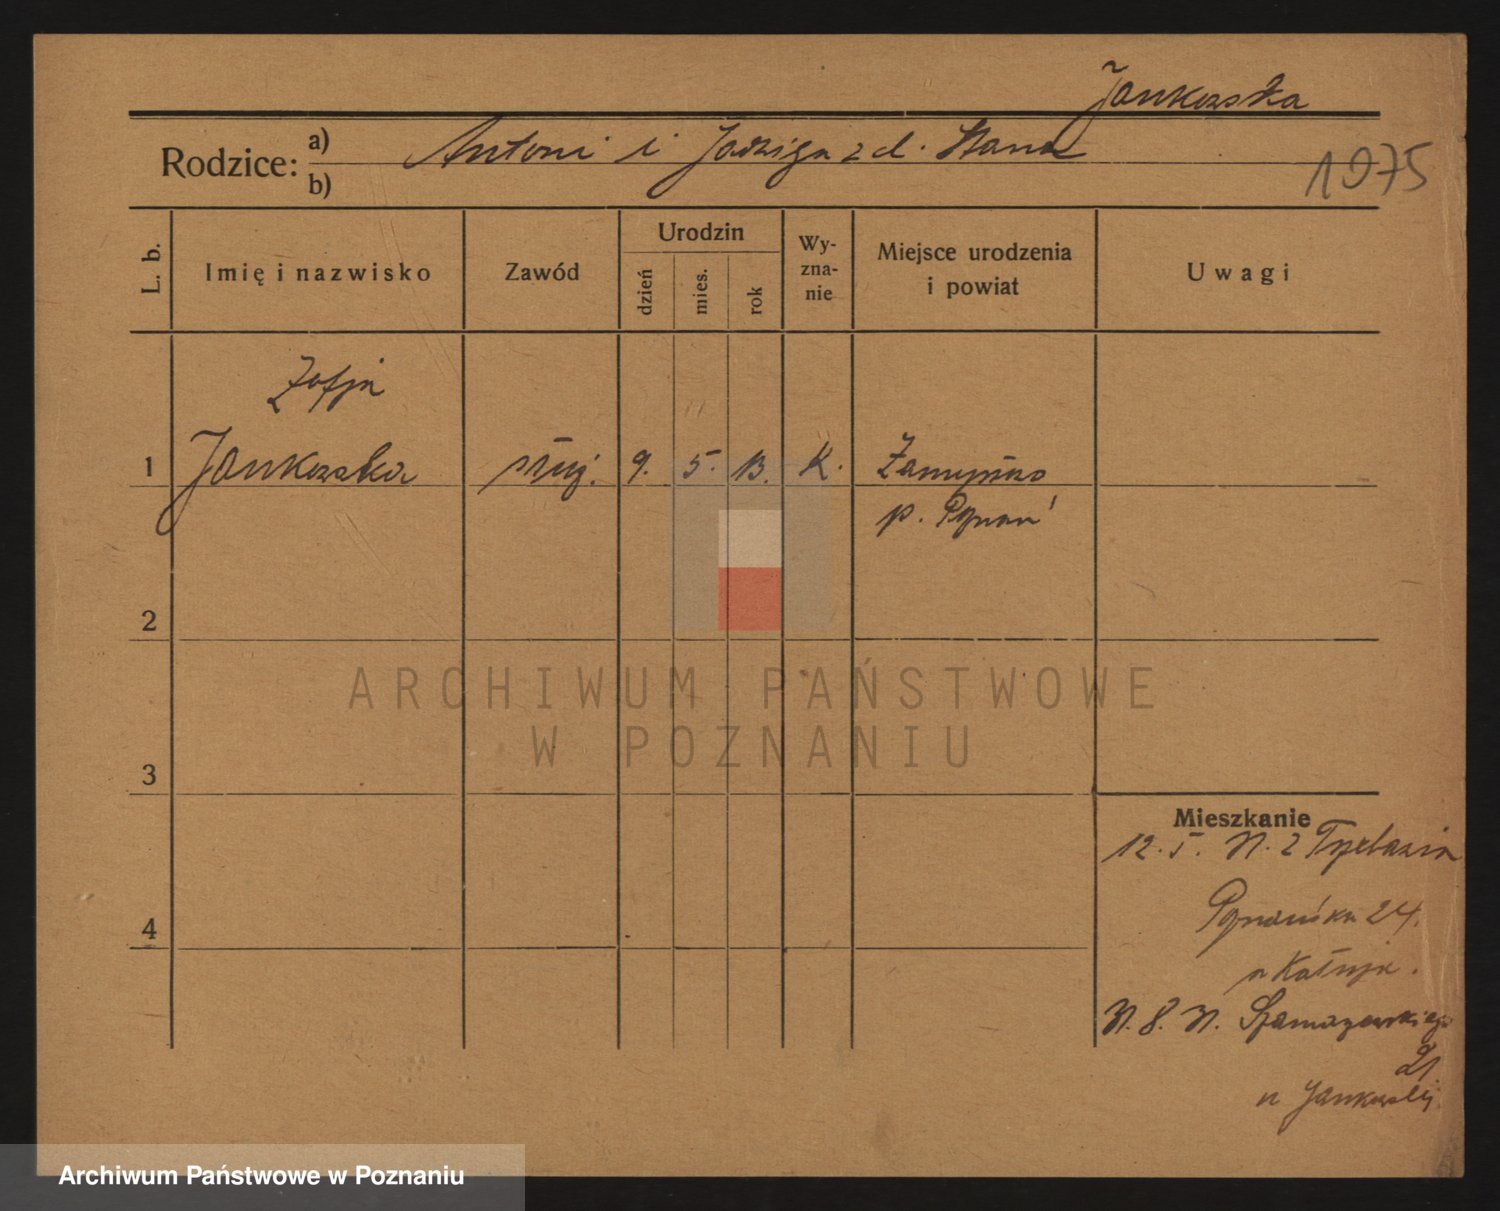 Jankowska
Rodzice: a) Antoni i Jadwiga z d.
b)
1975
L. b.
Imię i nazwisko
Zawód
Urodzin
dzień
mies.
rok
Wy-
zna-
nie
Miejsce urodzenia
i powiat
Uwagi
Zofja
1 Jankowska służ. 9. 5. 13. K.
p. Poznań
2
3
4
Mieszkanie
12. 5.
Poznańska 24.
u
Szamarzewskiego
21
u Jankowskiej
ARCHIWUM PAŃSTWOWE
W POZNANIU
Archiwum Państwowe w Poznaniu